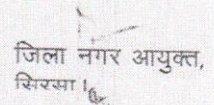 जिला नगर आयुक्त,
सिरसा।